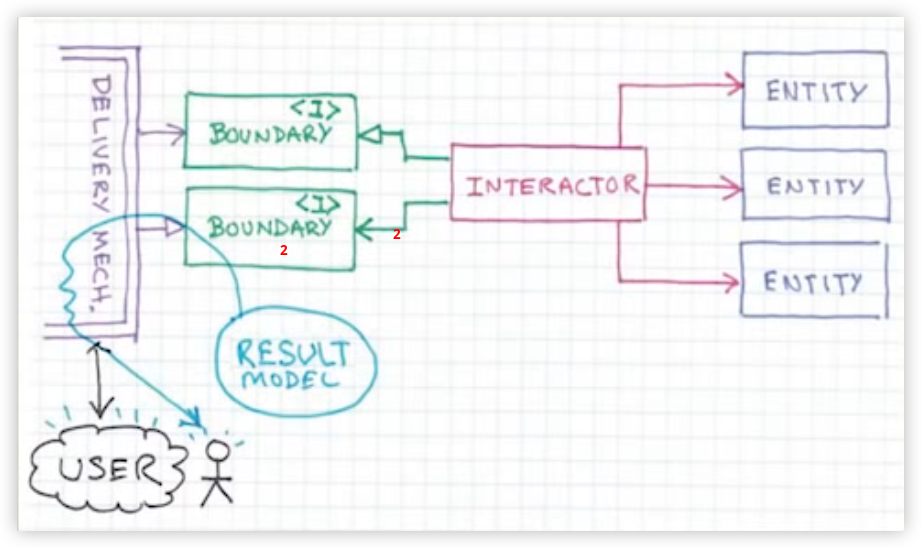 DELIVERY MECH.
<I>
BOUNDARY
<I>
BOUNDARY
2
2
INTERACTOR
ENTITY
ENTITY
ENTITY
RESULT
MODEL
USER